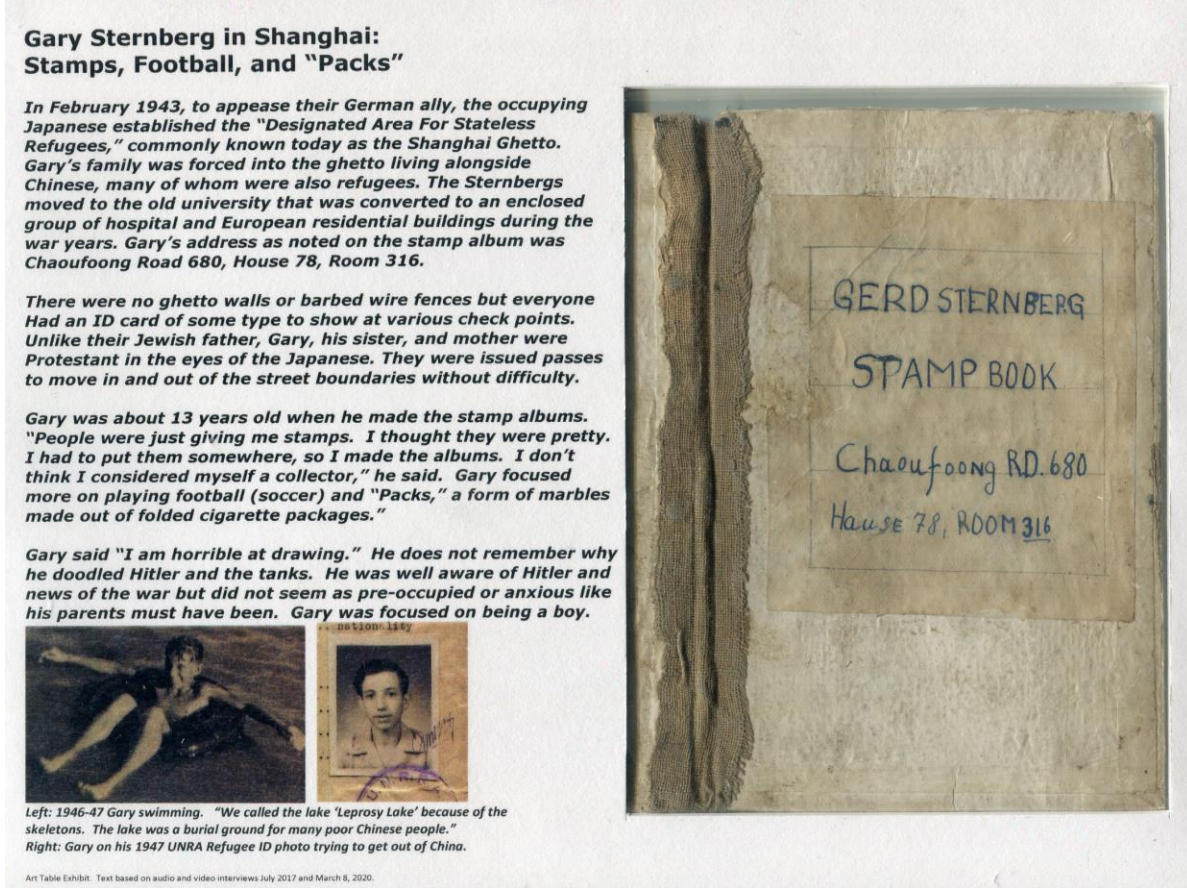 Gary Sternberg in Shanghai:
Stamps, Football, and “Packs”
In February 1943, to appease their German ally, the occupying
Japanese established the “Designated Area For Stateless
Refugees,” commonly known today as the Shanghai Ghetto.
Gary’s family was forced into the ghetto living alongside
Chinese, many of whom were also refugees. The Sternbergs
moved to the old university that was converted to an enclosed
group of hospital and European residential buildings during the
war years. Gary’s address as noted on the stamp album was
Chaoufoong Road 680, House 78, Room 316.
There were no ghetto walls or barbed wire fences but everyone
Had an ID card of some type to show at various check points.
Unlike their Jewish father, Gary, his sister, and mother were
Protestant in the eyes of the Japanese. They were issued passes
to move in and out of the street boundaries without difficulty.
Gary was about 13 years old when he made the stamp albums.
“People were just giving me stamps. I thought they were pretty.
I had to put them somewhere, so I made the albums. I don’t
think I considered myself a collector,” he said. Gary focused
more on playing football (soccer) and “Packs,” a form of marbles
made out of folded cigarette packages.”
Gary said “I am horrible at drawing.” He does not remember why
he doodled Hitler and the tanks. He was well aware of Hitler and
news of the war but did not seem as pre-occupied or anxious like
his parents must have been. Gary was focused on being a boy.
nationality
Left: 1946-47 Gary swimming. “We called the lake ‘Leprosy Lake’ because of the
skeletons. The lake was a burial ground for many poor Chinese people.”
Right: Gary on his 1947 UNRA Refugee ID photo trying to get out of China.
Art Table Exhibit. Text based on audio and video interviews July 2017 and March 8, 2020.
GERD STERNBERG
STAMP BOOK
Chaoufoong RD. 680
Hause 78, ROOM 316